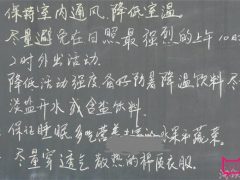 保持室内通风、降低室温
尽量避免在日照最强烈的上午10
2时外出活动.
降低活动强度备好防暑降温饮料尽
淡盐开水或含盐饮料.
保证睡眠多吃营养 水果和蔬菜.
尽量穿透气散热的棉质衣服.